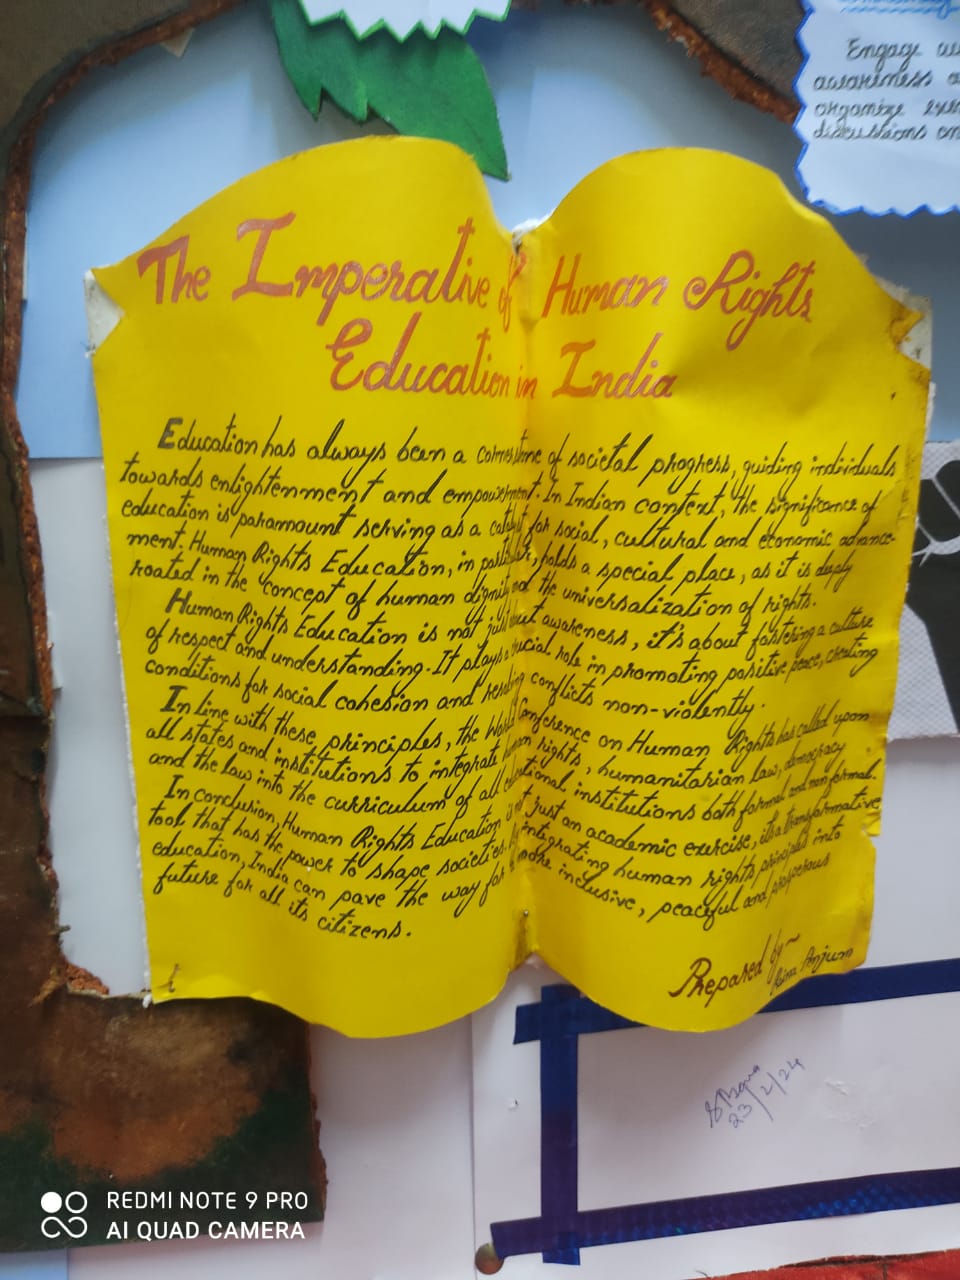 The Imperative of Human Rights
Education in India
Education has always been a cornerstone of societal progress, guiding individuals
towards enlightenment and empowerment. In Indian context, the significance of
education is paramount serving as a catalyst for social, cultural and economic advance-
ment. Human Rights Education, in particular, holds a special place, as it is deeply
roated in the concept of human dignity and the universalization of rights.
Human Rights Education is not just about awareness, it's about fostering a culture
of respect and understanding. It plays a crucial role in promoting positive peace, creating
conditions for social cohesion and resolving conflicts non-violently.
In line with these principles, the World Conference on Human Rights has called upon
all states and institutions to integrate human rights, humanitarian law, democracy
and the law into the curriculum of all educational institutions both formal and non formal.
In conclusion, Human Rights Education is not just an academic exercise, its a transformative
tool that has the power to shape societies. By integrating human rights principles into
education, India can pave the way for a more inclusive, peaceful and prosperous
future for all its citizens.
Prepared by~
Anjum
Engage
awareness
organize
discussions on
23/2/24
REDMI NOTE 9 PRO
AI QUAD CAMERA